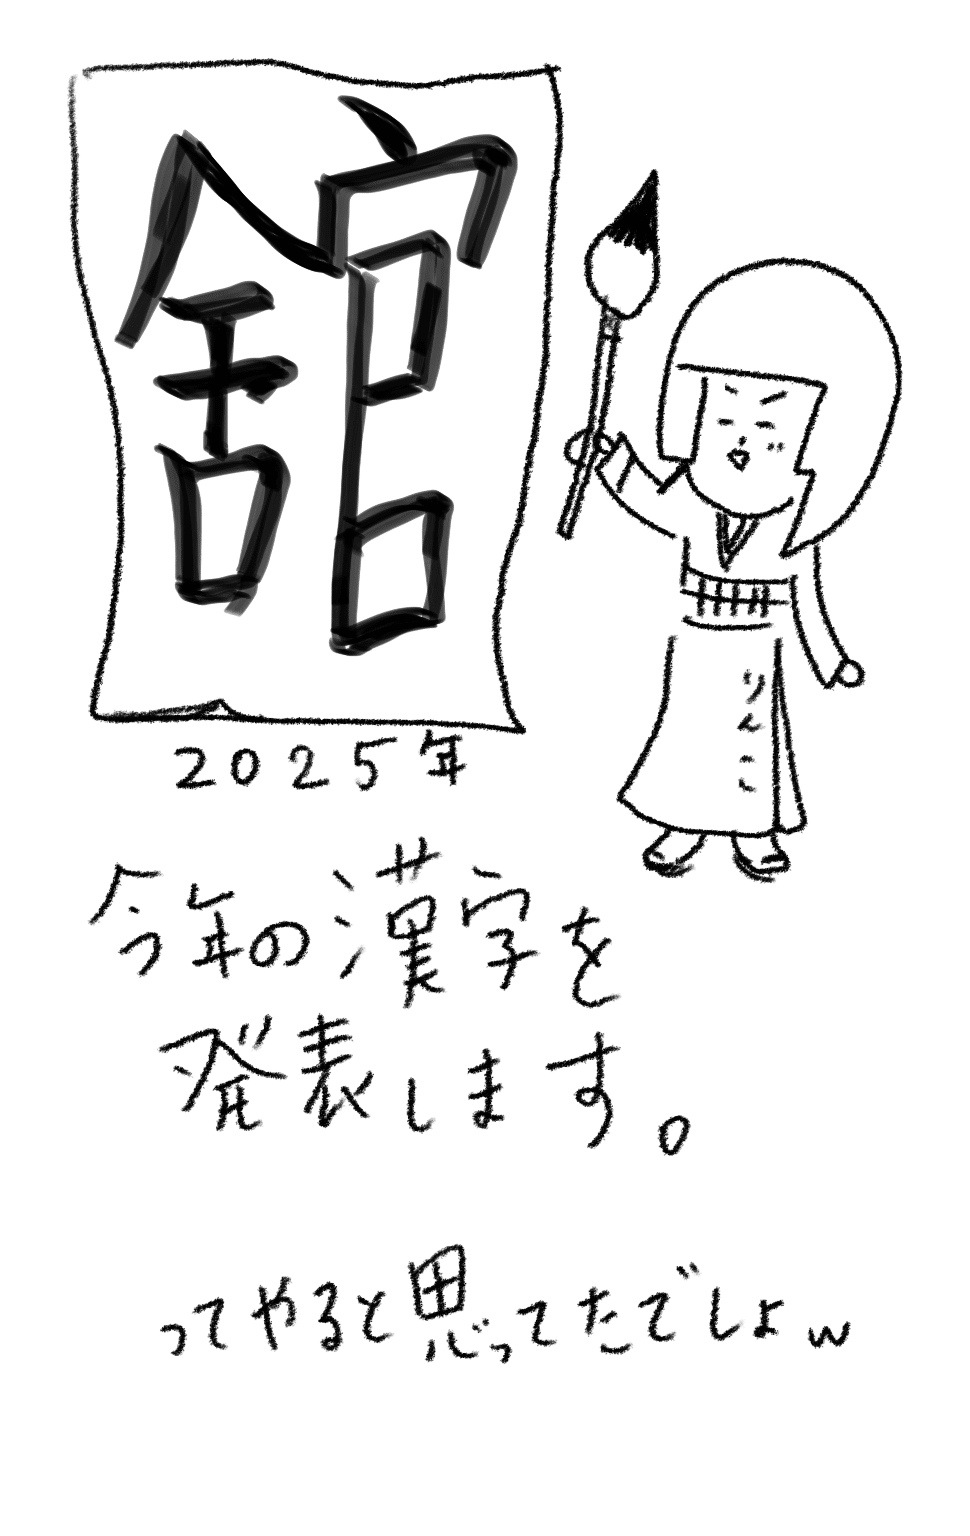 舘
りんこ
2025年
今年の漢字を
発表します。
ってやると思ってたでしょw